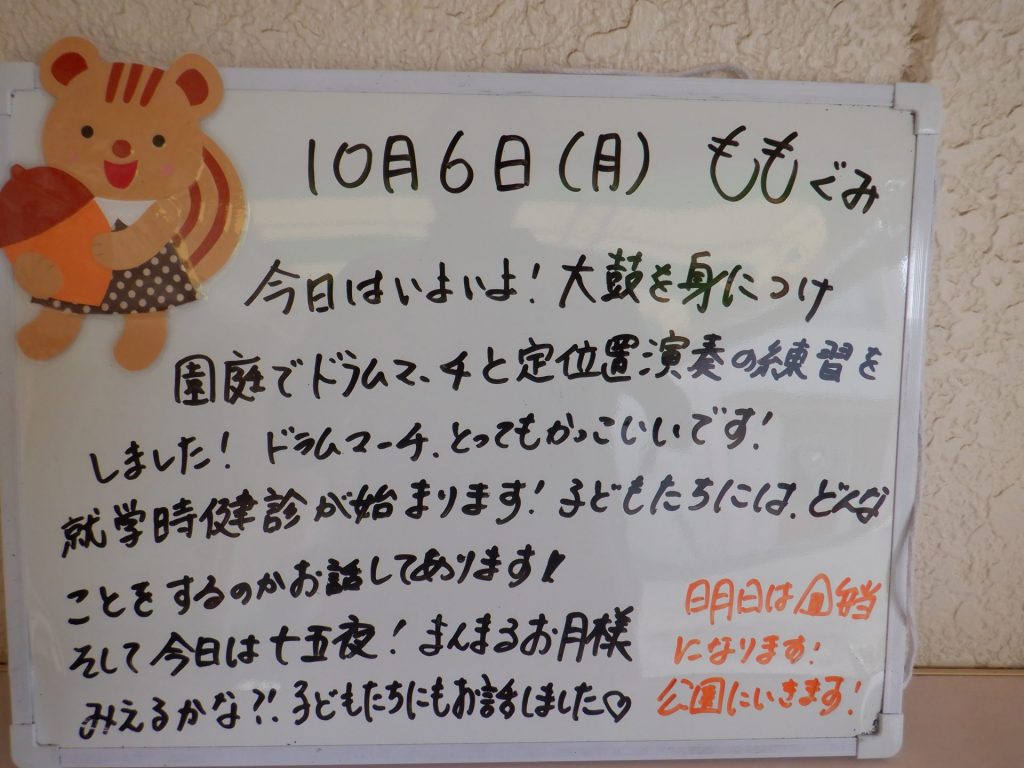 10月6日(月) ももぐみ
今日はいよいよ!大鼓を身につけ
園庭でドラムマーチと定位置演奏の練習を
しました!ドラムマーチ、とってもかっこいいです!
就学時健診が始まります!子どもたちには、どんな
ことをするのかお話してあります!
そして今日は十五夜!まんまるお月様
みえるかな?!子どもたちにもお話しました♡
明日は弁当
になります!
公園にいきます!